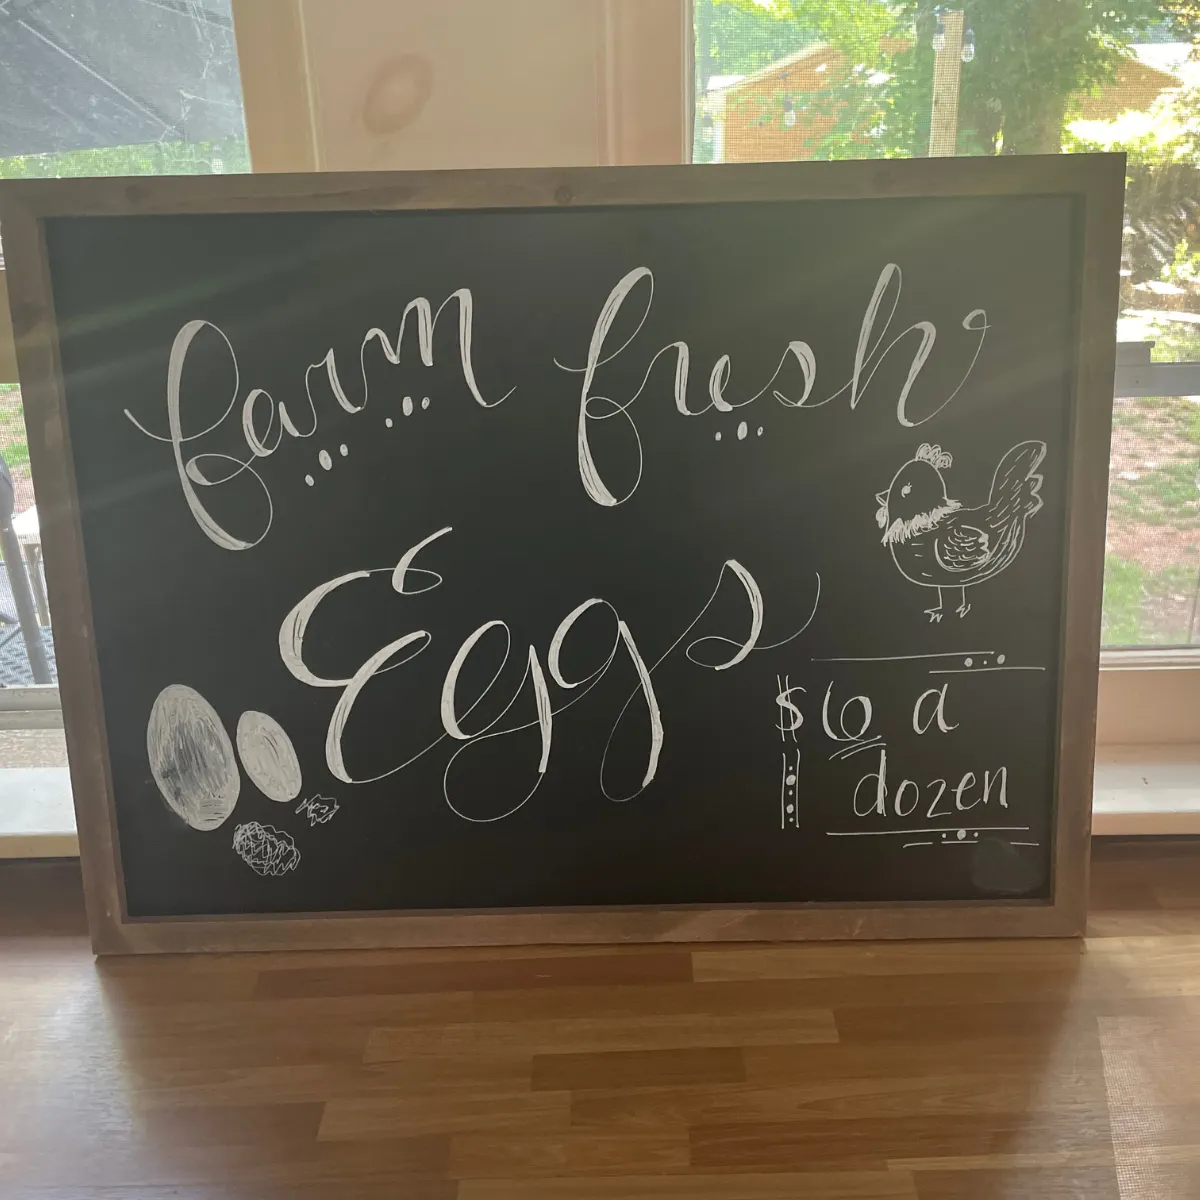 farm fresh
Eggs
$6 a
dozen